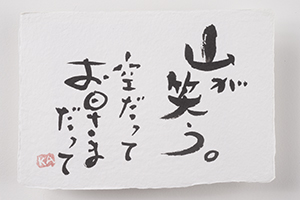 山が
笑う。
空だって
お日さま
だって
KA